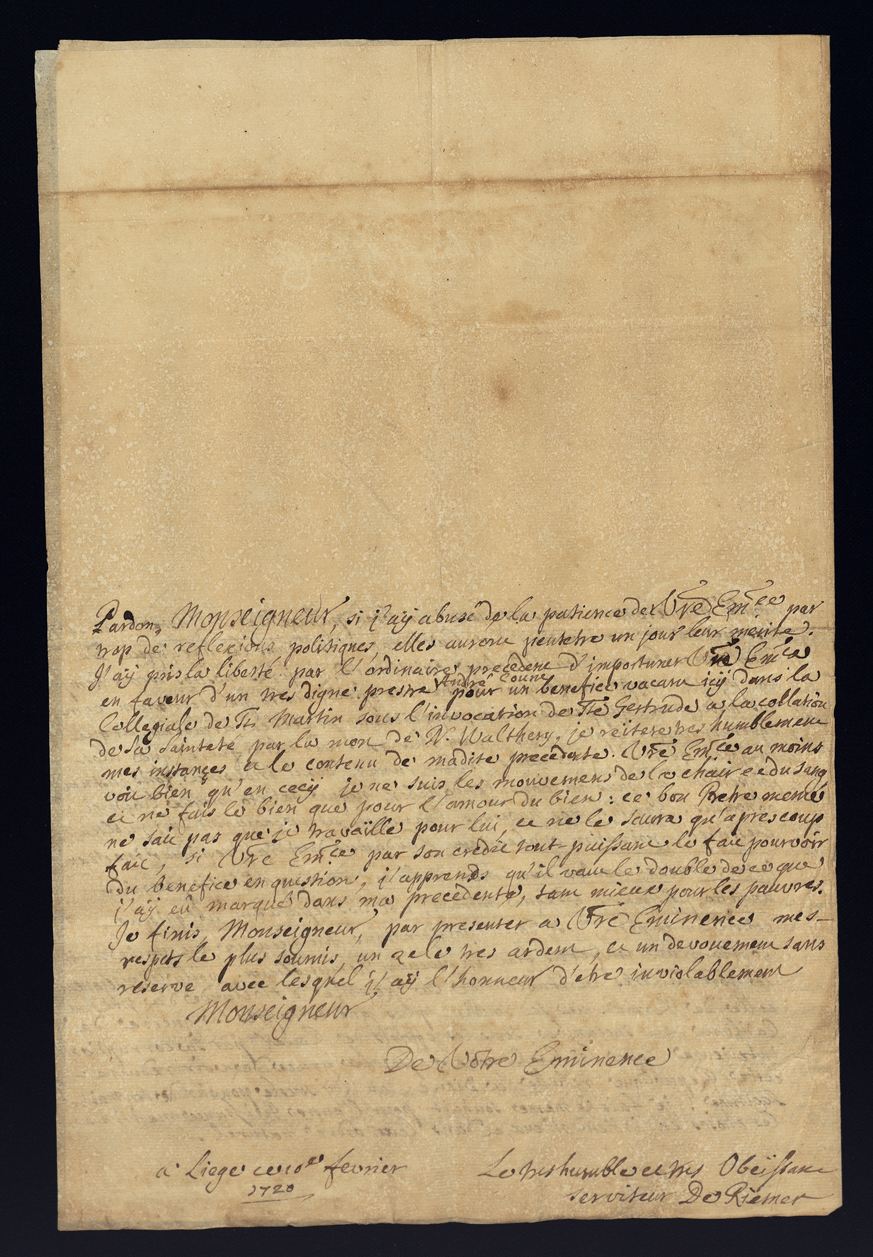 Pardon, Monseigneur, si j'aÿ abusé de la patience de Vr̃e Em.ce par
trop de reflexions politiques, elles auront peutetre un jour leur merite.
J'aÿ pris la liberté par l'ordinaire precedent d'importuner Vr̃e Em.ce
André Coune
en faveur d'un tres digne prestre pour un benefice vacant icÿ dans la
Collegiale de St. Martin sous l'invocation de Ste Gertrude a la collation
de sa Sainteté par la mort de Walthery. je reitere tres humblement
mes instances et le contenu de madite precedente. Vr̃e Em.ce au moins
voit bien qu'en cecÿ je ne suis les mouvemens de la chair et du sang
et ne fais le bien que pour l'amour du bien: ce bon Pretre meme
ne sait pas que je travaille pour lui, et ne le scaura qu'apres coup
fait, si Vr̃e Em.ce par son credit tout-puissant le fait pourvoir
du benefice en question, j'apprends qu'il vaut le double de ce que
j'aÿ eû marqué dans ma precedente, tant mieux pour les pauvres.
Je finis, Monseigneur, par presenter a Vr̃e Eminence mes
respets le plus soumis, un zele tres ardent, et un devouement sans
reserve avec lesquel j'aÿ l'honneur d'etre inviolablement
Monseigneur
De Vôtre Eminence
a Liege ce fevrier
1720
Le tres humble et tres Obeissant
serviteur De